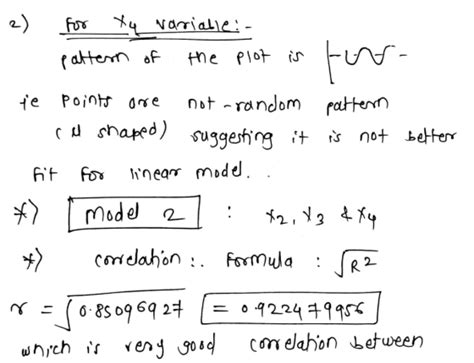 2) For X4 variable:-
pattern of the plot is
ie points are not-random pattern
(U shaped) suggesting it is not better
fit for linear model..
*) Model 2 : X2, X3 & X4
*) correlation:. Formula : √R2
r = √0.85096927 = 0.922479956
which is very good correlation between